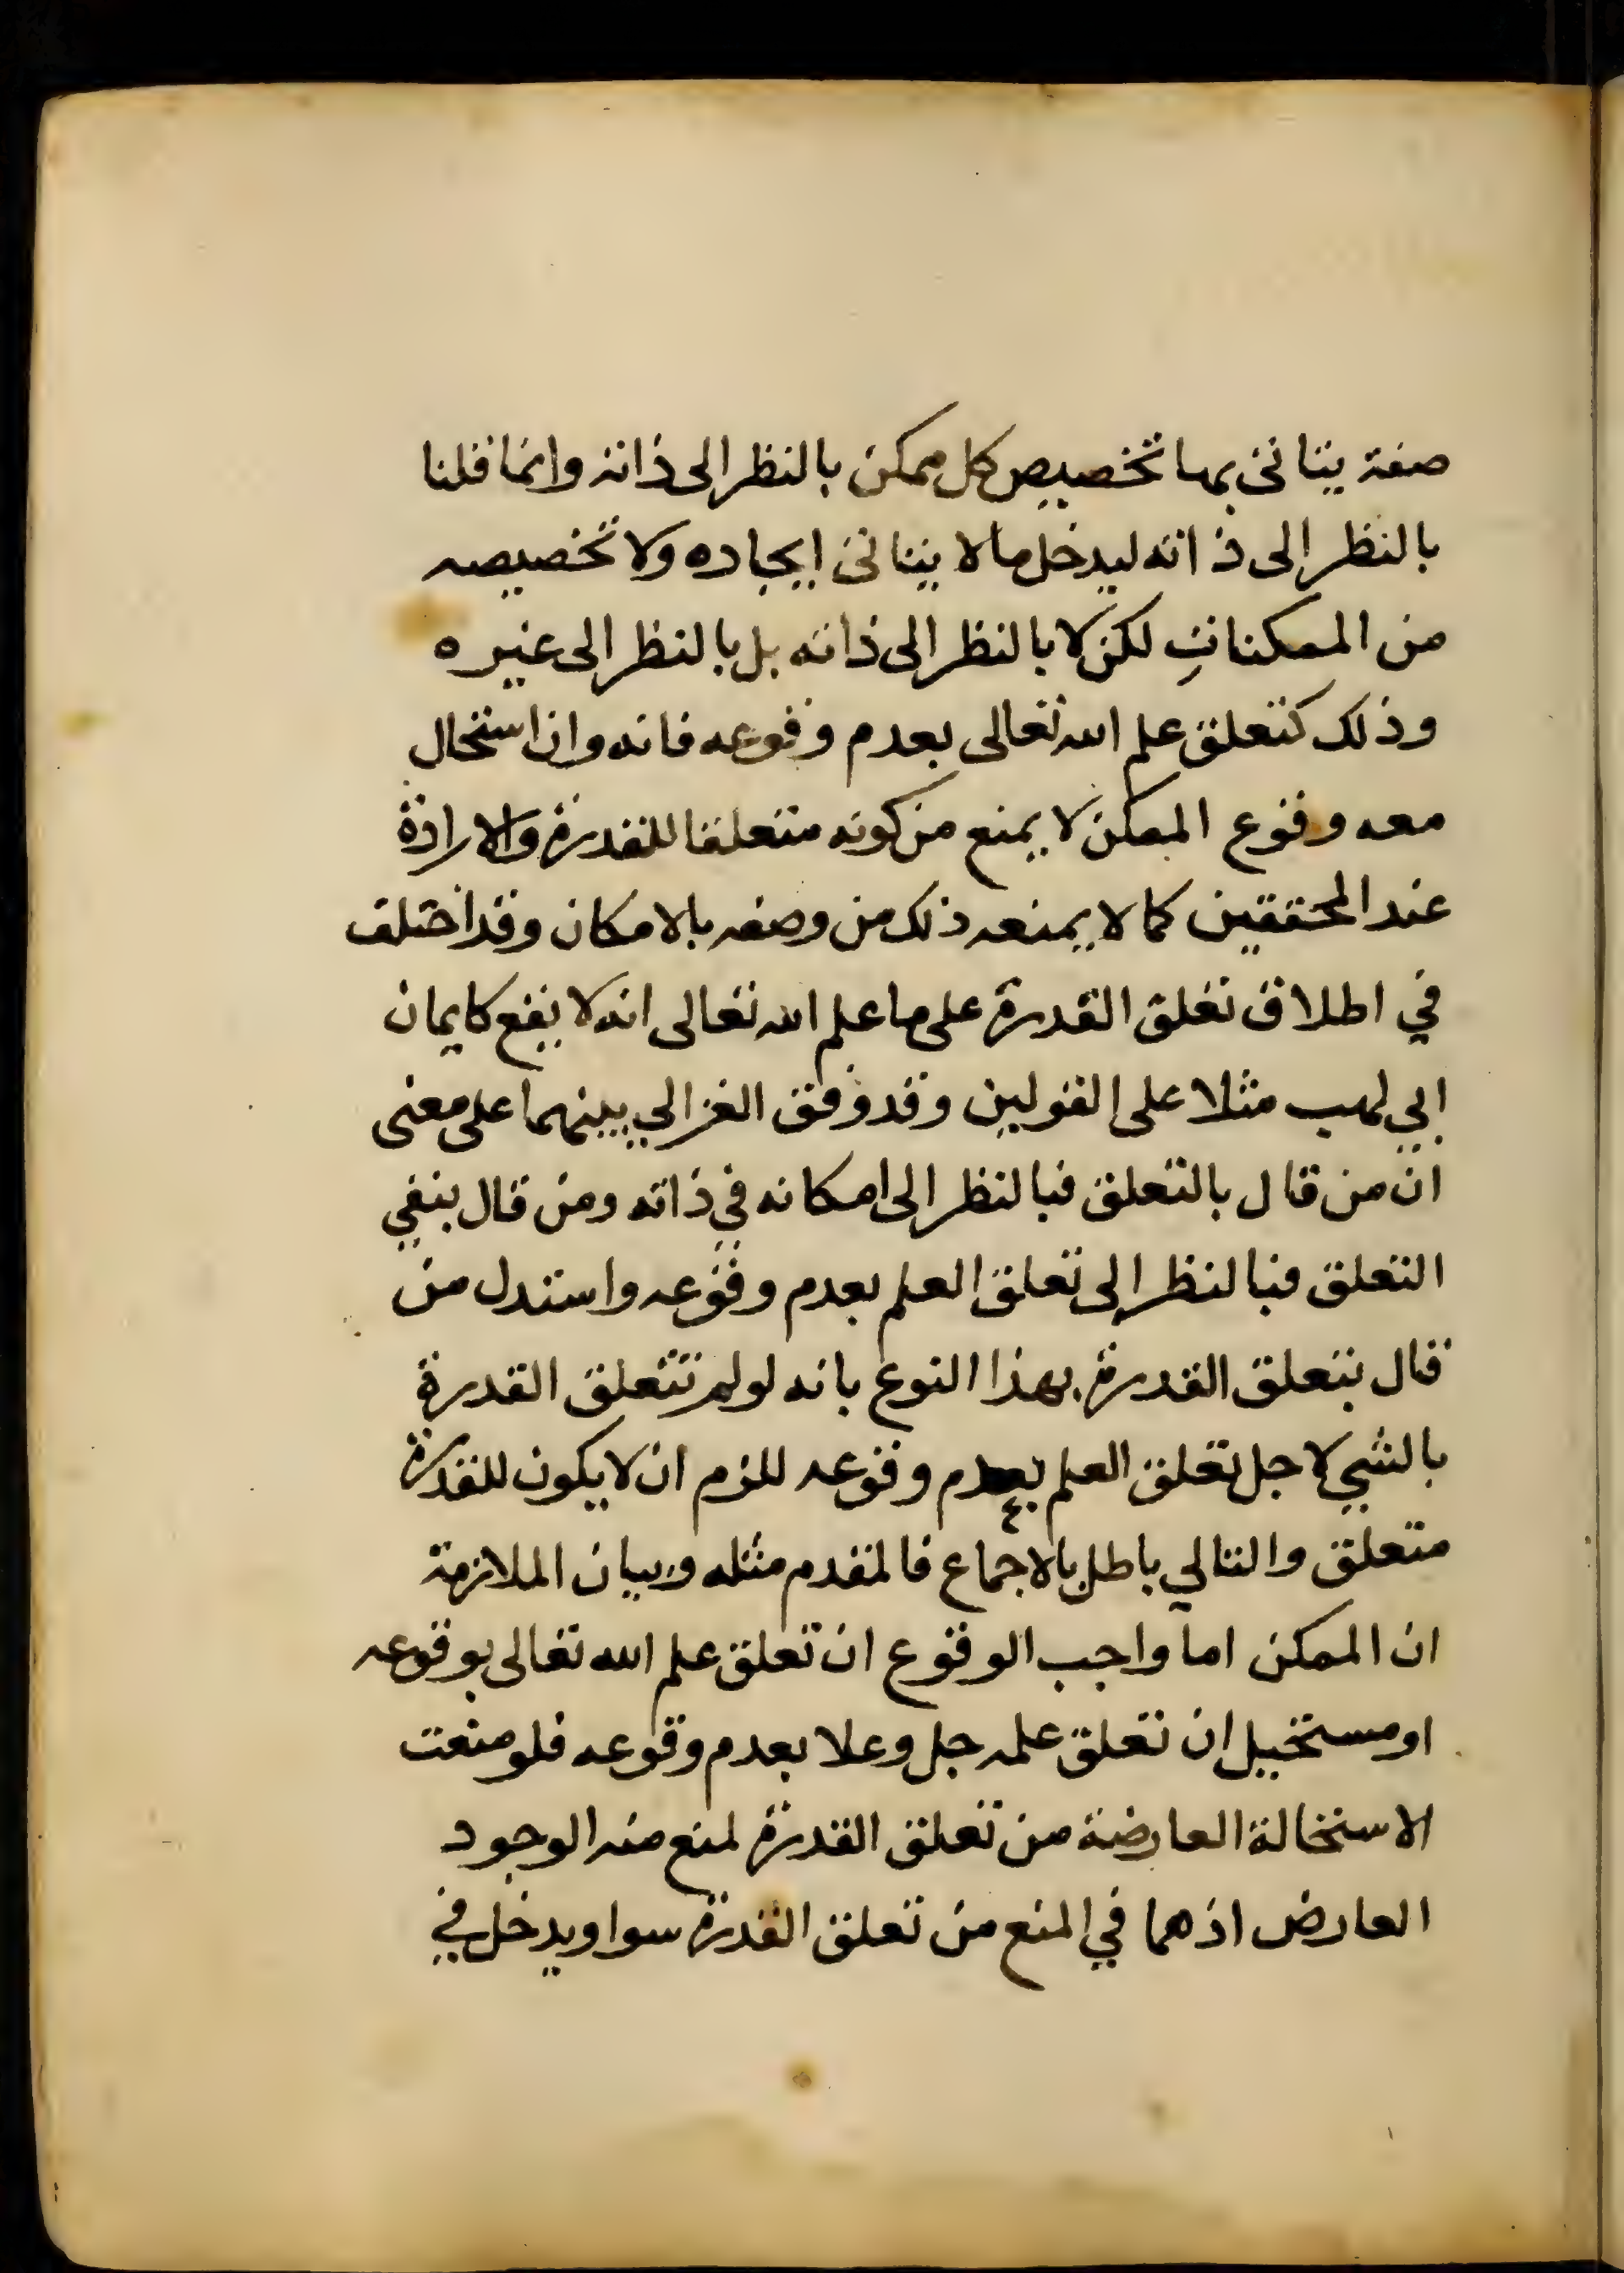 صفة يتاتى بها تخصيص كل ممكن بالنظر الى ذاته وانما قلنا
بالنظر الى ذاته ليدخل ما لا يتاتى ايجاده ولا تخصيصه
من الممكنات لكن لا بالنظر الى ذاته بل بالنظر الى غيره
وذلك كتعلق علم الله تعالى بعدم وقوعه فانه وان استحال
معه وقوع الممكن لا يمنع من كونه متعلقا للقدرة والارادة
عند المحققين كما لا يمنعه ذلك من وصفه بالامكان وقد اختلف
في اطلاق تعلق القدرة على ما علم الله تعالى انه لا يقع كايمان
ابي لهب مثلا على القولين وقد وفق الغزالي بينهما على معنى
ان من قال بالتعلق فبالنظر الى امكانه في ذاته ومن قال بنفي
التعلق فبالنظر الى تعلق العلم بعدم وقوعه واستدل من
قال بتعلق القدرة بهذا النوع بانه لو لم تتعلق القدرة
بالشي لاجل تعلق العلم بعدم وقوعه للزم ان لا يكون للقدرة
متعلق والتالي باطل بالاجماع فالمقدم مثله وبيان الملازمة
ان الممكن اما واجب الوقوع ان تعلق علم الله تعالى بوقوعه
او مستحيل ان تعلق علمه جل وعلا بعدم وقوعه فلو منعت
الاستحالة العارضة من تعلق القدرة لمنع منه الوجود
العارض اذ هما في المنع من تعلق القدرة سوا ويدخل في